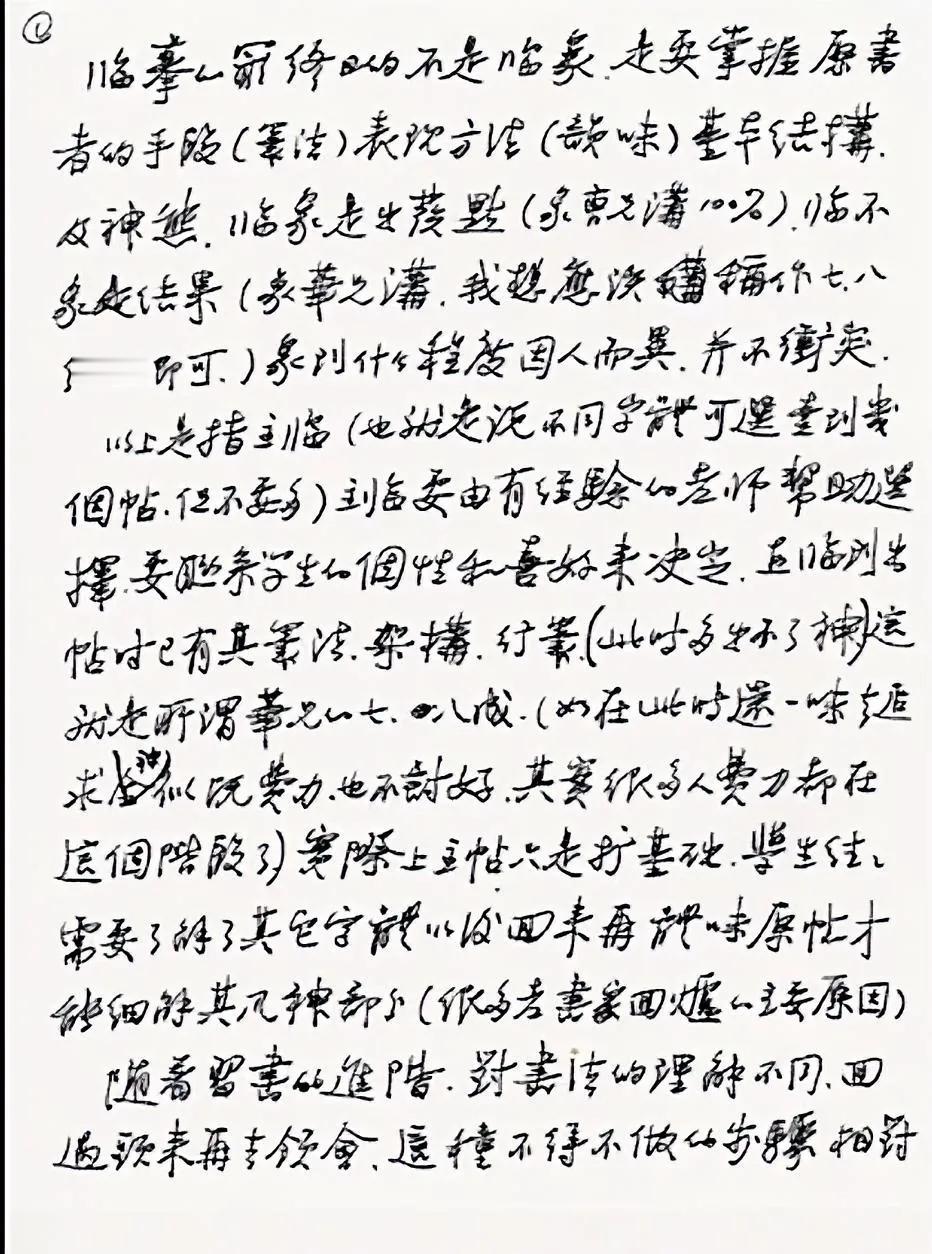 ①
临摹的最终目的不是临象，是要掌握原書
者的手段(筆法)表现方法(韻味)基本结構，
及神態，临象是出發點(象曹兄講100%)，临不
象是结果(象華兄講，我想應该稱作七、八
即可，)象到什么程度因人而異，并不衝突．
以上是指主临(也就是说不同字體可選查到幾
個帖，但不要多)主临要由有经驗的老师幫助選
擇，要联系学生的個性和喜好来决定，直临到出
帖时已有其筆法，架構，行筆，(此时多出不了神)這
就是所谓華兄的七、八成．(如在此时還一味去追
求全(神)似既費力，也不討好，其實很多人費力都在
這個階段了)實際上主帖只是打基础，學生往々
需要了解了其它字體以後回来再體味原帖才
能细解其风神部分(很多老書家回爐的主要原因)
随着習書的進階，對書法的理解不同，回
過頭来再去领會，這種不得不做的步驟相對